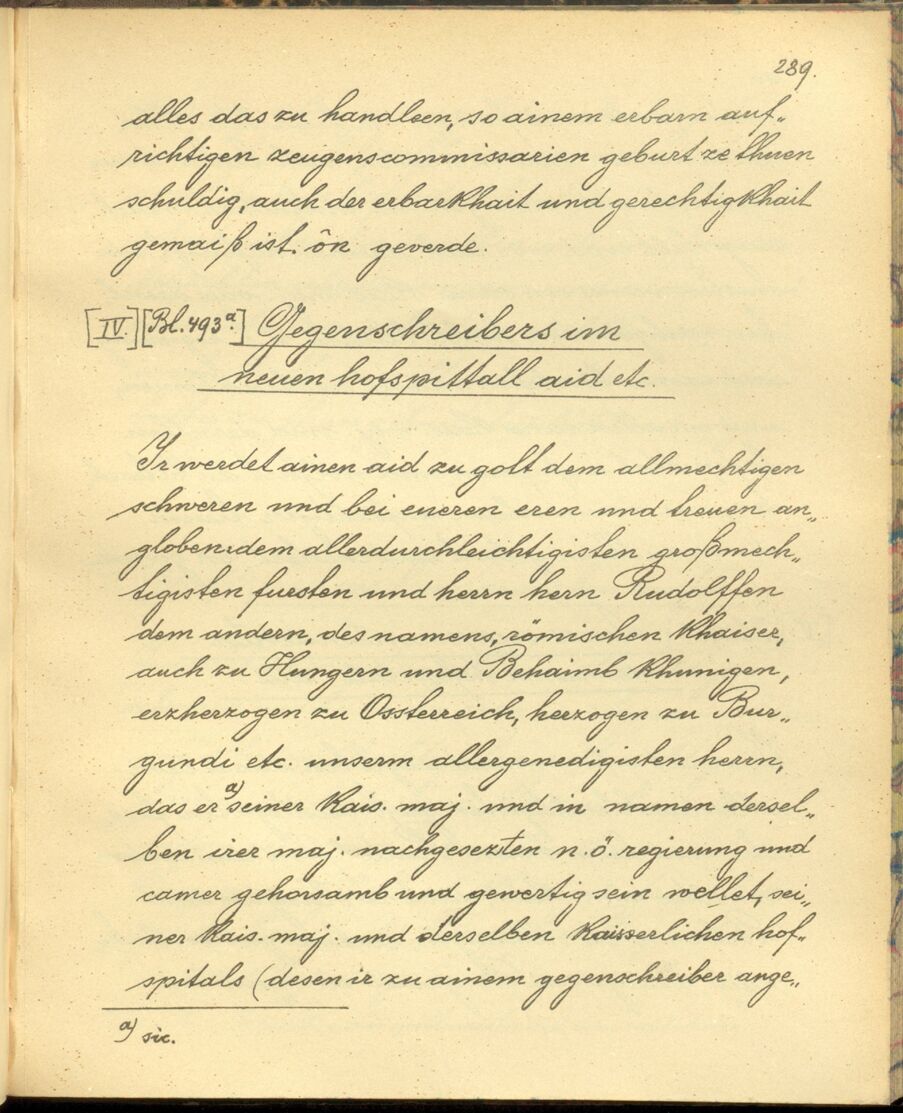 239.
alles das zu handleen, so ainem erbarn auf„
richtigen zeugenscommissarien geburt ze thuen
schuldig, auch der erbarkhait und gerechtigkhait
gemaiß ist. ôn geverde.
[IV.] [Bl. 493ª.] Gegenschreibers im
neuen hofspittall aid etc.
Ir werdet ainen aid zu gott dem allmechtigen
schweren und bei eneren eren und treuen an„
globen: dem allerdurchleichtigisten großmech„
tigisten fursten und herrn hern Rudolffen
dem andern, des namens, römischen Khaiser,
auch zu Hungern und Behaimb Khunigen,
erzherzogen zu Ossterreich, herzogen zu Bur„
gundi etc. unserm allergenedigisten herrn,
das er a) seiner Kais. maj. und in namen dersel„
ben irer maj. nachgesezten n. ö. regierung und
camer gehorsamb und gewertig sein wellet, sei„
ner Kais. maj. und derselben Kaiserlichen hof„
spitals (desen ir zu ainem gegenschreiber ange„
a) sic.